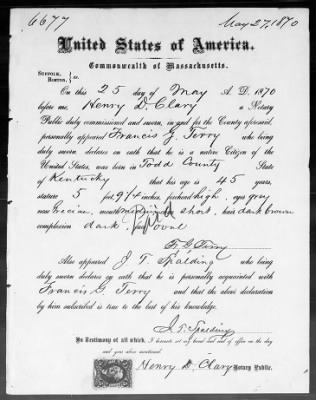 6677
May 27, 1870
United States of America.
Commonwealth of Massachusetts.
SUFFOLK,
BOSTON, ss.
On this 25 day of May A. D. 1870
before me, Henry D. Clary a Notary
Public duly commissioned and sworn, in and for the County aforesaid,
personally appeared Francis G. Terry who being
duly sworn declares on oath that he is a native Citizen of the
United States, was born in Todd County State
of Kentucky that his age is 45 years,
stature 5 feet 9 1/4 inches, forehead high, eyes grey
nose Grecian, mouth chin short, hair dark brown
complexion dark, face oval
F. G. Terry
Also appeared J. T. Spalding who being
duly sworn declares on oath that he is personally acquainted with
Francis G. Terry and that the above declaration
by him subscribed is true to the best of his knowledge.
J. T. Spalding
In Testimony of all which, I hereunto set my hand and seal of office on the day
and year above mentioned.
Henry D. Clary Notary Public.